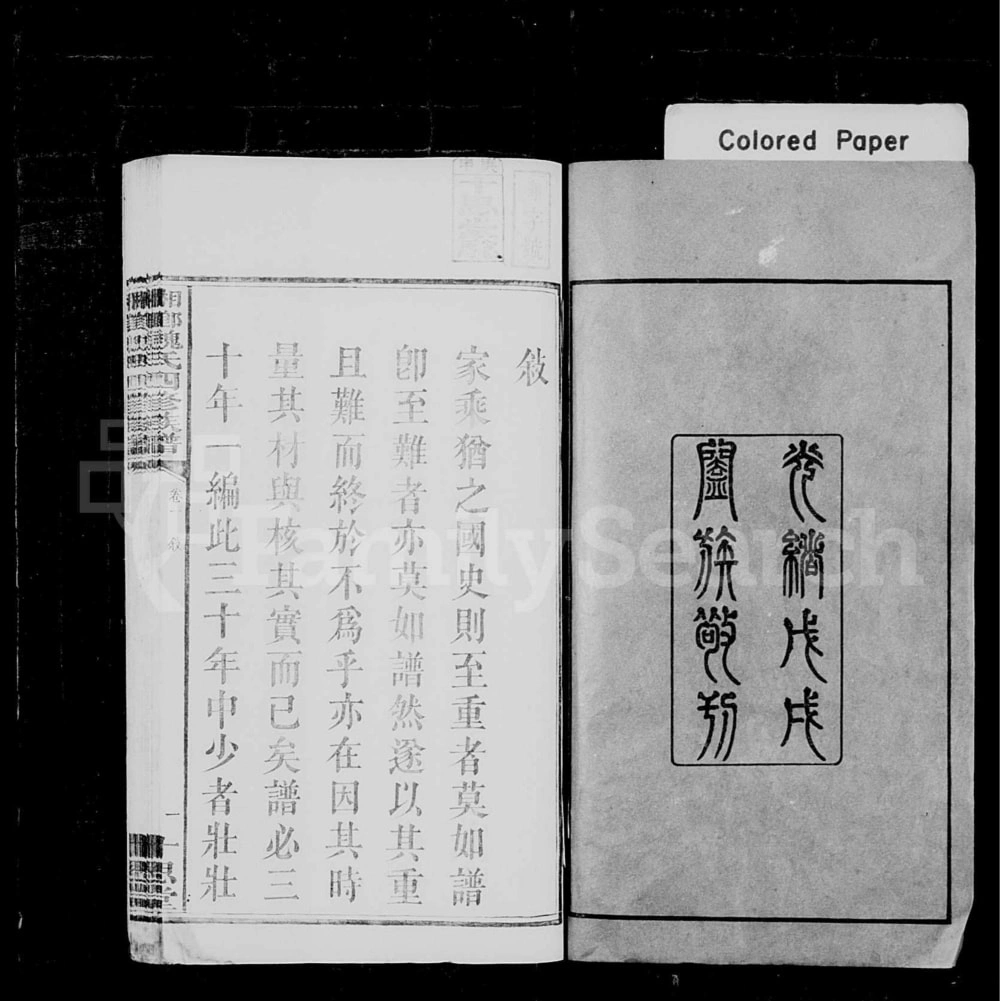 Colored Paper
光緒戊戌
闔族敬刊
敘
家乘猶之國史則至重者莫如譜
卽至難者亦莫如譜然遂以其重
且難而終於不爲乎亦在因其時
量其材與核其實而已矣譜必三
十年一編此三十年中少者壯壯
湘鄉魏氏四修族譜
卷一 敘
一
FamilySearch